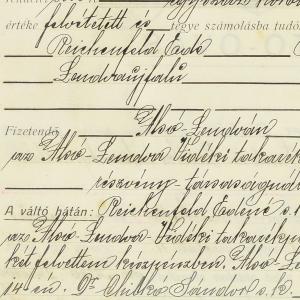 értéke felvétetett és tégye számolásba tudó
Reichenfeld Ede
Lendvaujfalu
Fizetendő Alsó-Lendván
az Alsó-Lendva Vidéki takarék
részvény-társaságnál
A váltó hátán: Reichenfeld Edéné s.k.
az Alsó-Lendva Vidéki takarékp
két felvettem készpénzben. Alsó-Le
14 én. Dr Chilko Sándor s.k.